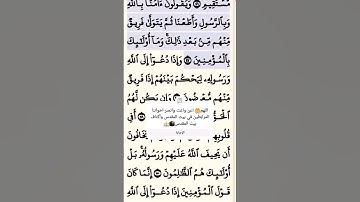 مُّسْتَقِيمٍ ۝ وَيَقُولُونَ ءَامَنَّا بِٱللَّهِ
وَبِٱلرَّسُولِ وَأَطَعْنَا ثُمَّ يَتَوَلَّىٰ فَرِيقٌ
مِّنْهُم مِّنۢ بَعْدِ ذَٰلِكَۚ وَمَآ أُوْلَٰٓئِكَ
بِٱلْمُؤْمِنِينَ ۝ وَإِذَا دُعُوٓاْ إِلَى ٱللَّهِ
وَرَسُولِهِۦ لِيَحْكُمَ بَيْنَهُمْ إِذَا فَرِيقٌ
مِّنْهُم مُّعْرِضُونَ ۝ وَإِن يَكُن لَّهُمُ
اللهم اعن واغث وانصر اخواننا
المرابطين في بيت المقدس وأكناف
بيت المقدس
ٱلْحَقُّ أَفِي
قُلُوبِهِم
أَن يَحِيفَ ٱللَّهُ عَلَيْهِمْ وَرَسُولُهُۥۚ بَلْ
أُوْلَٰٓئِكَ هُمُ ٱلظَّٰلِمُونَ ۝ إِنَّمَا كَانَ
قَوْلَ ٱلْمُؤْمِنِينَ إِذَا دُعُوٓاْ إِلَى ٱللَّهِ